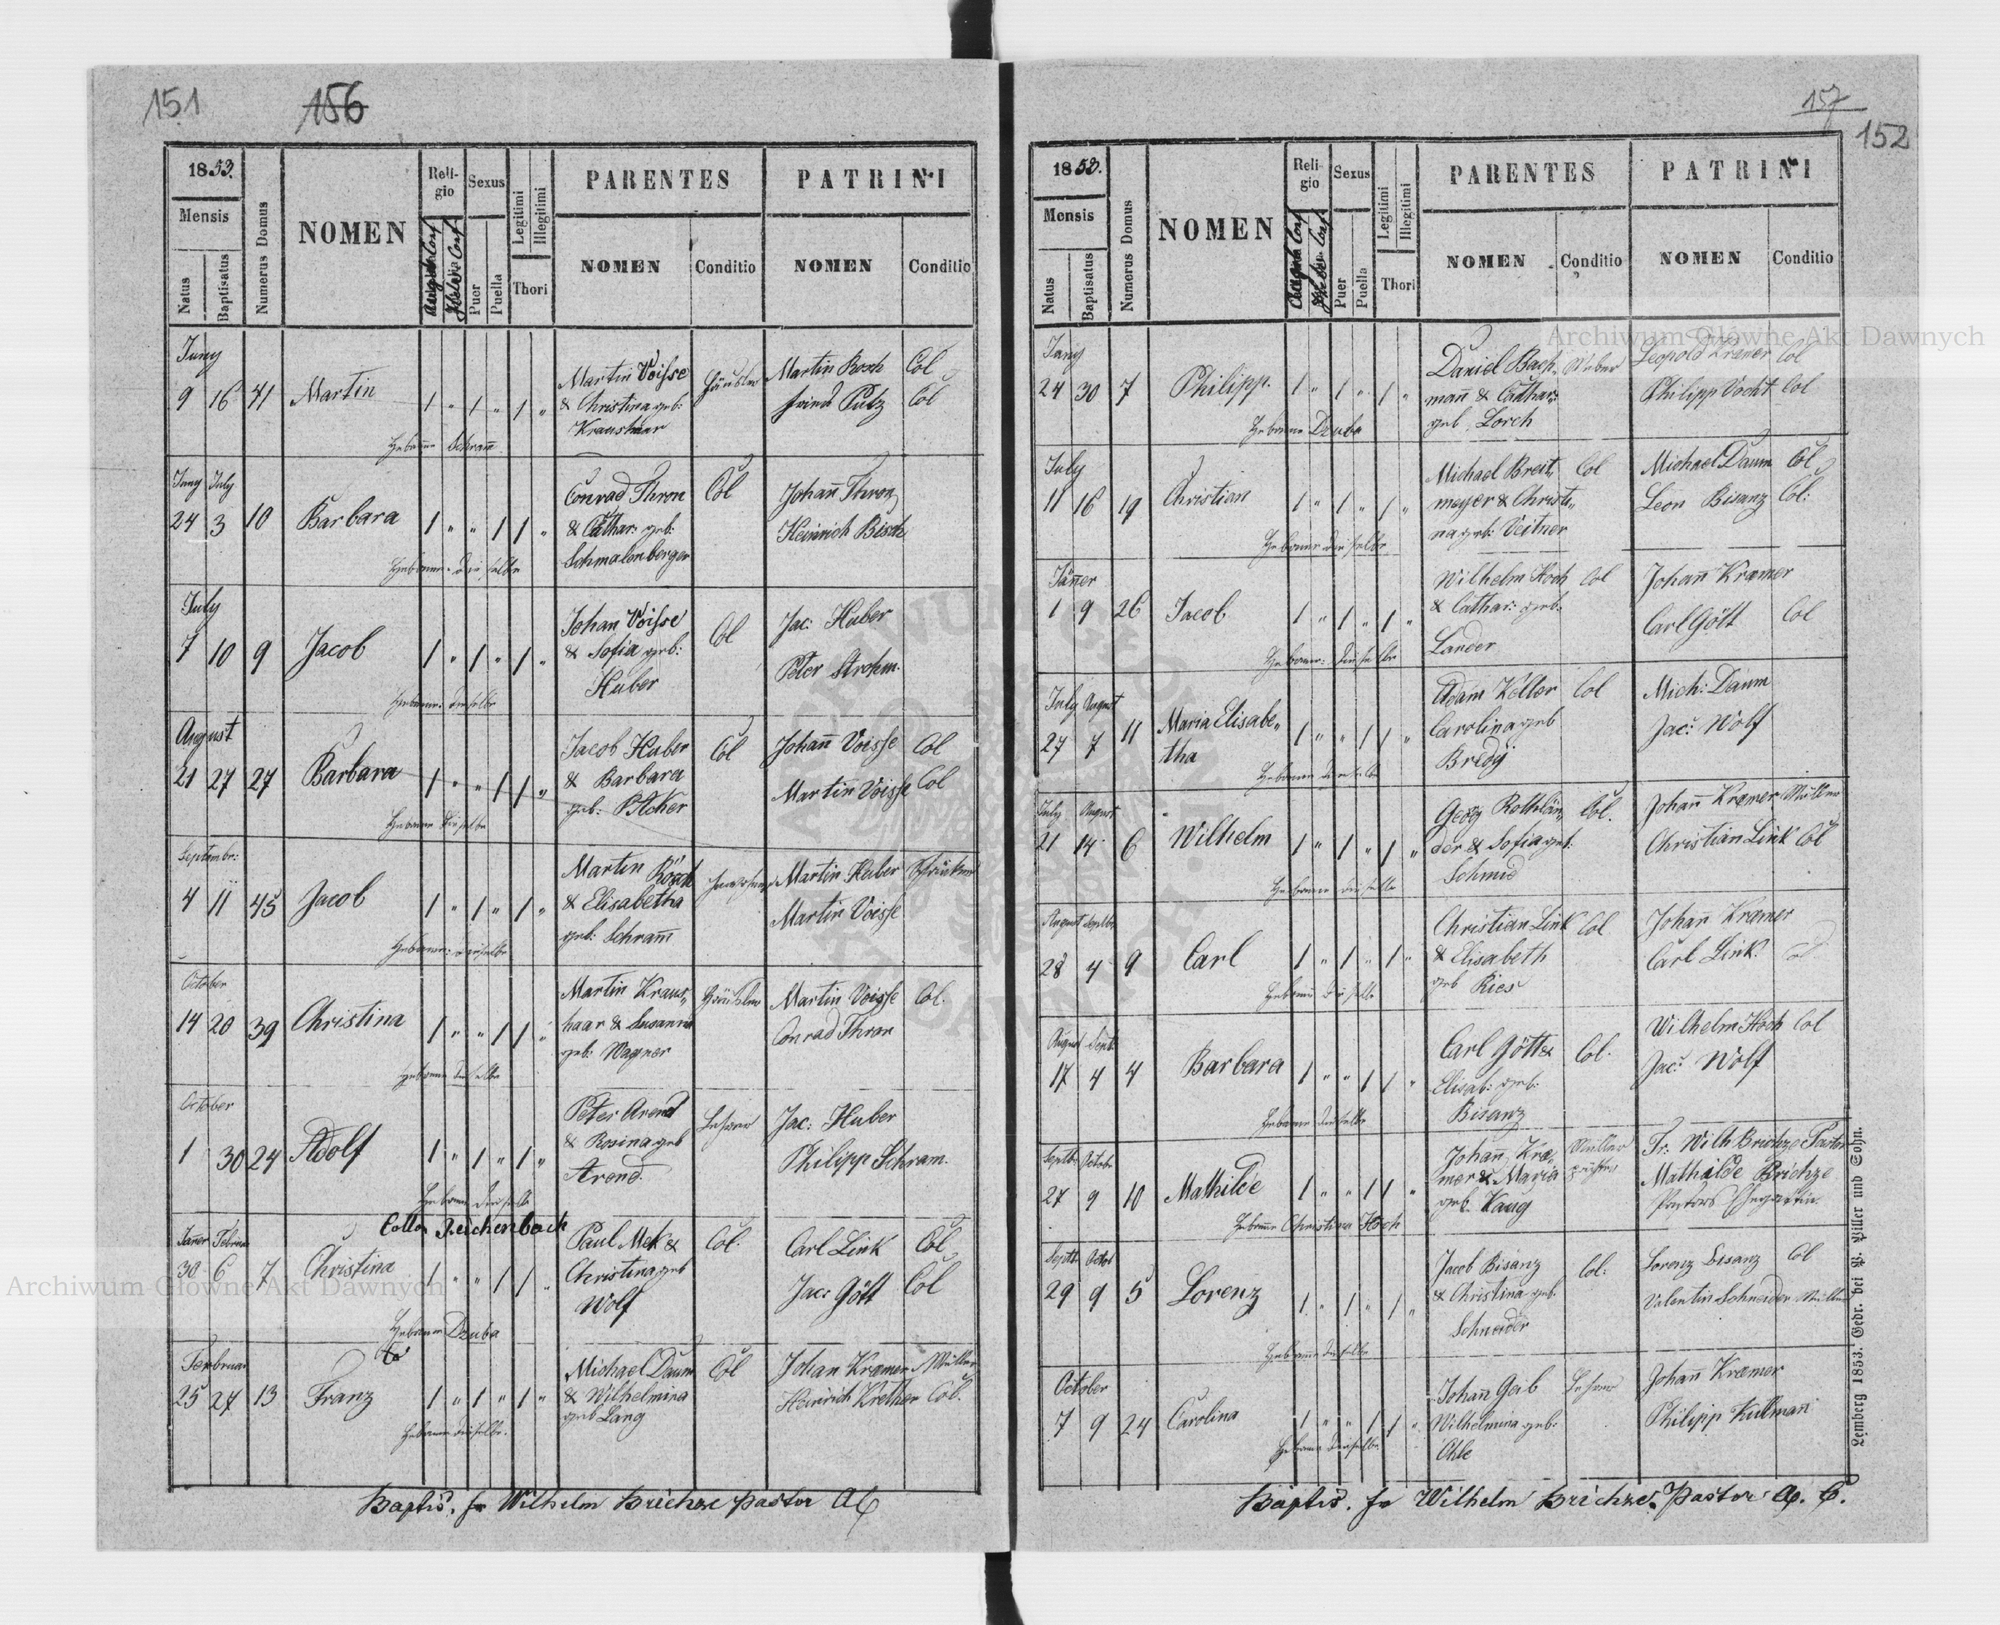 151
156
1853.
Mensis
Natus
Baptisatus
Numerus Domus
NOMEN
Reli-
gio
Sexus
Puer
Puella
Legitimi
Illegitimi
Thori
PARENTES
NOMEN
Conditio
PATRINI
NOMEN
Conditio
Juny
9 16 41 Martin 1 " 1 " 1 "
Martin Voisse
& Christina geb:
Kraushaar
Häusler
Martin Rosch Col
Putz Col
Hebamme Schram
Juny July
24 3 10 Barbara 1 " " 1 1 "
Conrad Thron
& Cathar: geb:
Schmalenberger
Col
Johann Thron
Heinrich Bisch
Hebamme dieselbe
July
7 10 9 Jacob 1 " 1 " 1 "
Johan Voisse
& Sofia geb:
Huber
Col
Jac: Huber
Peter Strohm.
Hebamme dieselbe
August
21 27 27 Barbara 1 " " 1 1 "
Jacob Huber
& Barbara
geb:
Col
Johann Voisse Col
Martin Voisse Col
Hebamme dieselbe
Septembr:
4 11 45 Jacob 1 " 1 " 1 "
Martin Rösch
& Elisabetha
geb: Schram
Martin Huber
Martin Voisse
Hebamme: dieselbe
October
14 20 39 Christina 1 " " 1 1 "
Martin Kraus„
haar & Susanna
geb: Wagner
Häusler
Martin Voisse Col.
Conrad Thron
Hebamme dieselbe
October
1 30 24 Adolf 1 " 1 " 1 "
Peter Arend
& Rosina geb
Arend.
Lehrer
Jac: Huber
Philipp Schram.
Hebamme dieselbe
Colla Reichenbach
Janer Februar
30 6 7 Christina 1 " " 1 1 "
Paul Mek &
Christina geb
Wolf
Col.
Carl Link Col
Jac: Gött Col
Hebamme Dzuba
Februar
25 27 13 Franz 1 " 1 " 1 "
Michael Daum
& Wilhelmina
geb Lang
Col
Johan Kramer Müller
Heinrich Krether Col.
Hebamme dieselbe.
Baptis. fr Wilhelm Brichze pastor AC
157
152
1853.
Mensis
Natus
Baptisatus
Numerus Domus
NOMEN
Reli-
gio
Sexus
Puer
Puella
Legitimi
Illegitimi
Thori
PARENTES
NOMEN
Conditio
PATRINI
NOMEN
Conditio
Juny
24 30 7 Philipp. 1 " 1 " 1 "
Daniel Bach„
mann & Cathar:
geb. Lorch
Weber
Leopold Kramer Col
Philipp Vocht Col
Hebamme Dzuba
July
11 16 19 Christian 1 " 1 " 1 "
Michael Breit„
meyer & Christi„
na geb: Veitner
Col
Michael Daum Col
Leon Bisanz Col:
Hebamme dieselbe
Jänner
1 9 26 Jacob 1 " 1 " 1 "
Wilhelm Koch
& Cathar: geb:
Lander
Col
Johann Kramer
Carl Gött Col
Hebamme: dieselbe
July August
27 7 11 Maria Elisabe„
tha 1 " " 1 1 "
Adam Keller
Carolina geb
Bredy
Col
Mich: Daum
Jac: Wolf
Hebamme dieselbe
July August
21 14 6 Wilhelm 1 " 1 " 1 "
Georg Rothlän„
der & Sofia geb:
Schmid
Col.
Johann Kramer Müller
Christian Link Col
Hebamme dieselbe
August Septbr
28 4 9 Carl 1 " 1 " 1 "
Christian Link
& Elisabeth
geb Ries
Col
Johan Kramer
Carl Link. Col
Hebamme dieselbe
August Septb
17 4 4 Barbara 1 " " 1 1 "
Carl Gött &
Elisab: geb:
Bisanz
Col.
Wilhelm Koch Col
Jac: Wolf
Hebamme dieselbe
Septbr Octobr
27 9 10 Mathilde 1 " " 1 1 "
Johan Kra„
mer & Maria
geb. Kaug
Müller
Fr. Wilh Brichze Pastor
Mathilde Brichze
Pastors
Hebamme Christina Koch
Septb Octob
29 9 5 Lorenz 1 " 1 " 1 "
Jacob Bisanz
& Christina geb
Schneider
Col:
Lorenz Bisanz Col
Valentin Schneider Müller
Hebamme dieselbe
October
7 9 24 Carolina 1 " " 1 1 "
Johann Geib
Wilhelmina geb:
Ohle
Lehrer
Johann Kramer
Philipp Kullman
Hebamme dieselbe
Baptis. fr Wilhelm Brichze Pastor A. C.
Lemberg 1853. Gedr. bei P. Piller und Sohn.
Archiwum Główne Akt Dawnych
Archiwum Główne Akt Dawnych